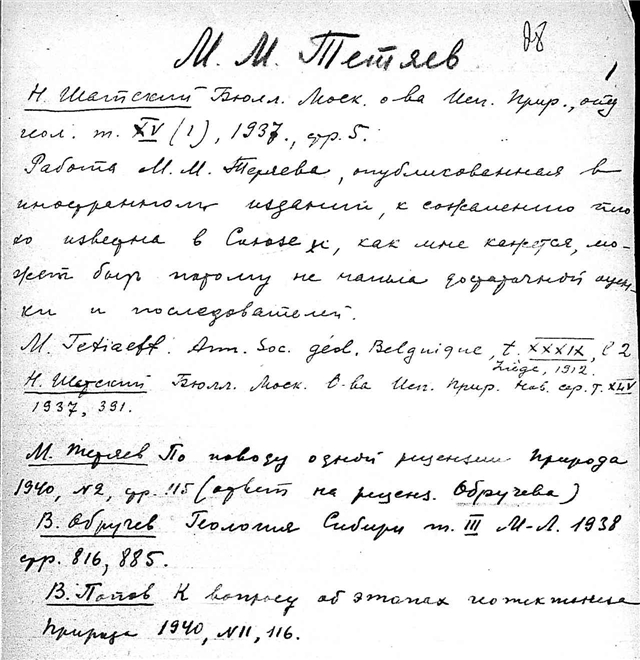 28
М. М. Тетяев
1
Н. Шатский Бюлл. Моск. о-ва Исп. Прир., отд
геол. т. XV (1), 1937., стр. 5.
Работа М. М. Тетяева, опубликованная в
иностранном издании, к сожалению пло
хо известна в Союзе и, как мне кажется, мо-
жет быть потому не нашла достаточной оцен-
ки и последователей.
M. Tetiaeff. Ann. Soc. géol. Belguique, t. XXXIX, l 2
Liége, 1912.
Н. Шатский Бюлл. Моск. О-ва Исп. Прир. Нов. сер. т. XLV
1937, 391.
М. Тетяев По поводу одной рецензии Природа
1940, N2, стр. 115 (ответ на реценз. Обручева)
В. Обручев Геология Сибири т. III М-Л. 1938
стр. 816, 885.
В. Попов К вопросу об этапах геотектогенеза
Природа 1940, N11, 116.